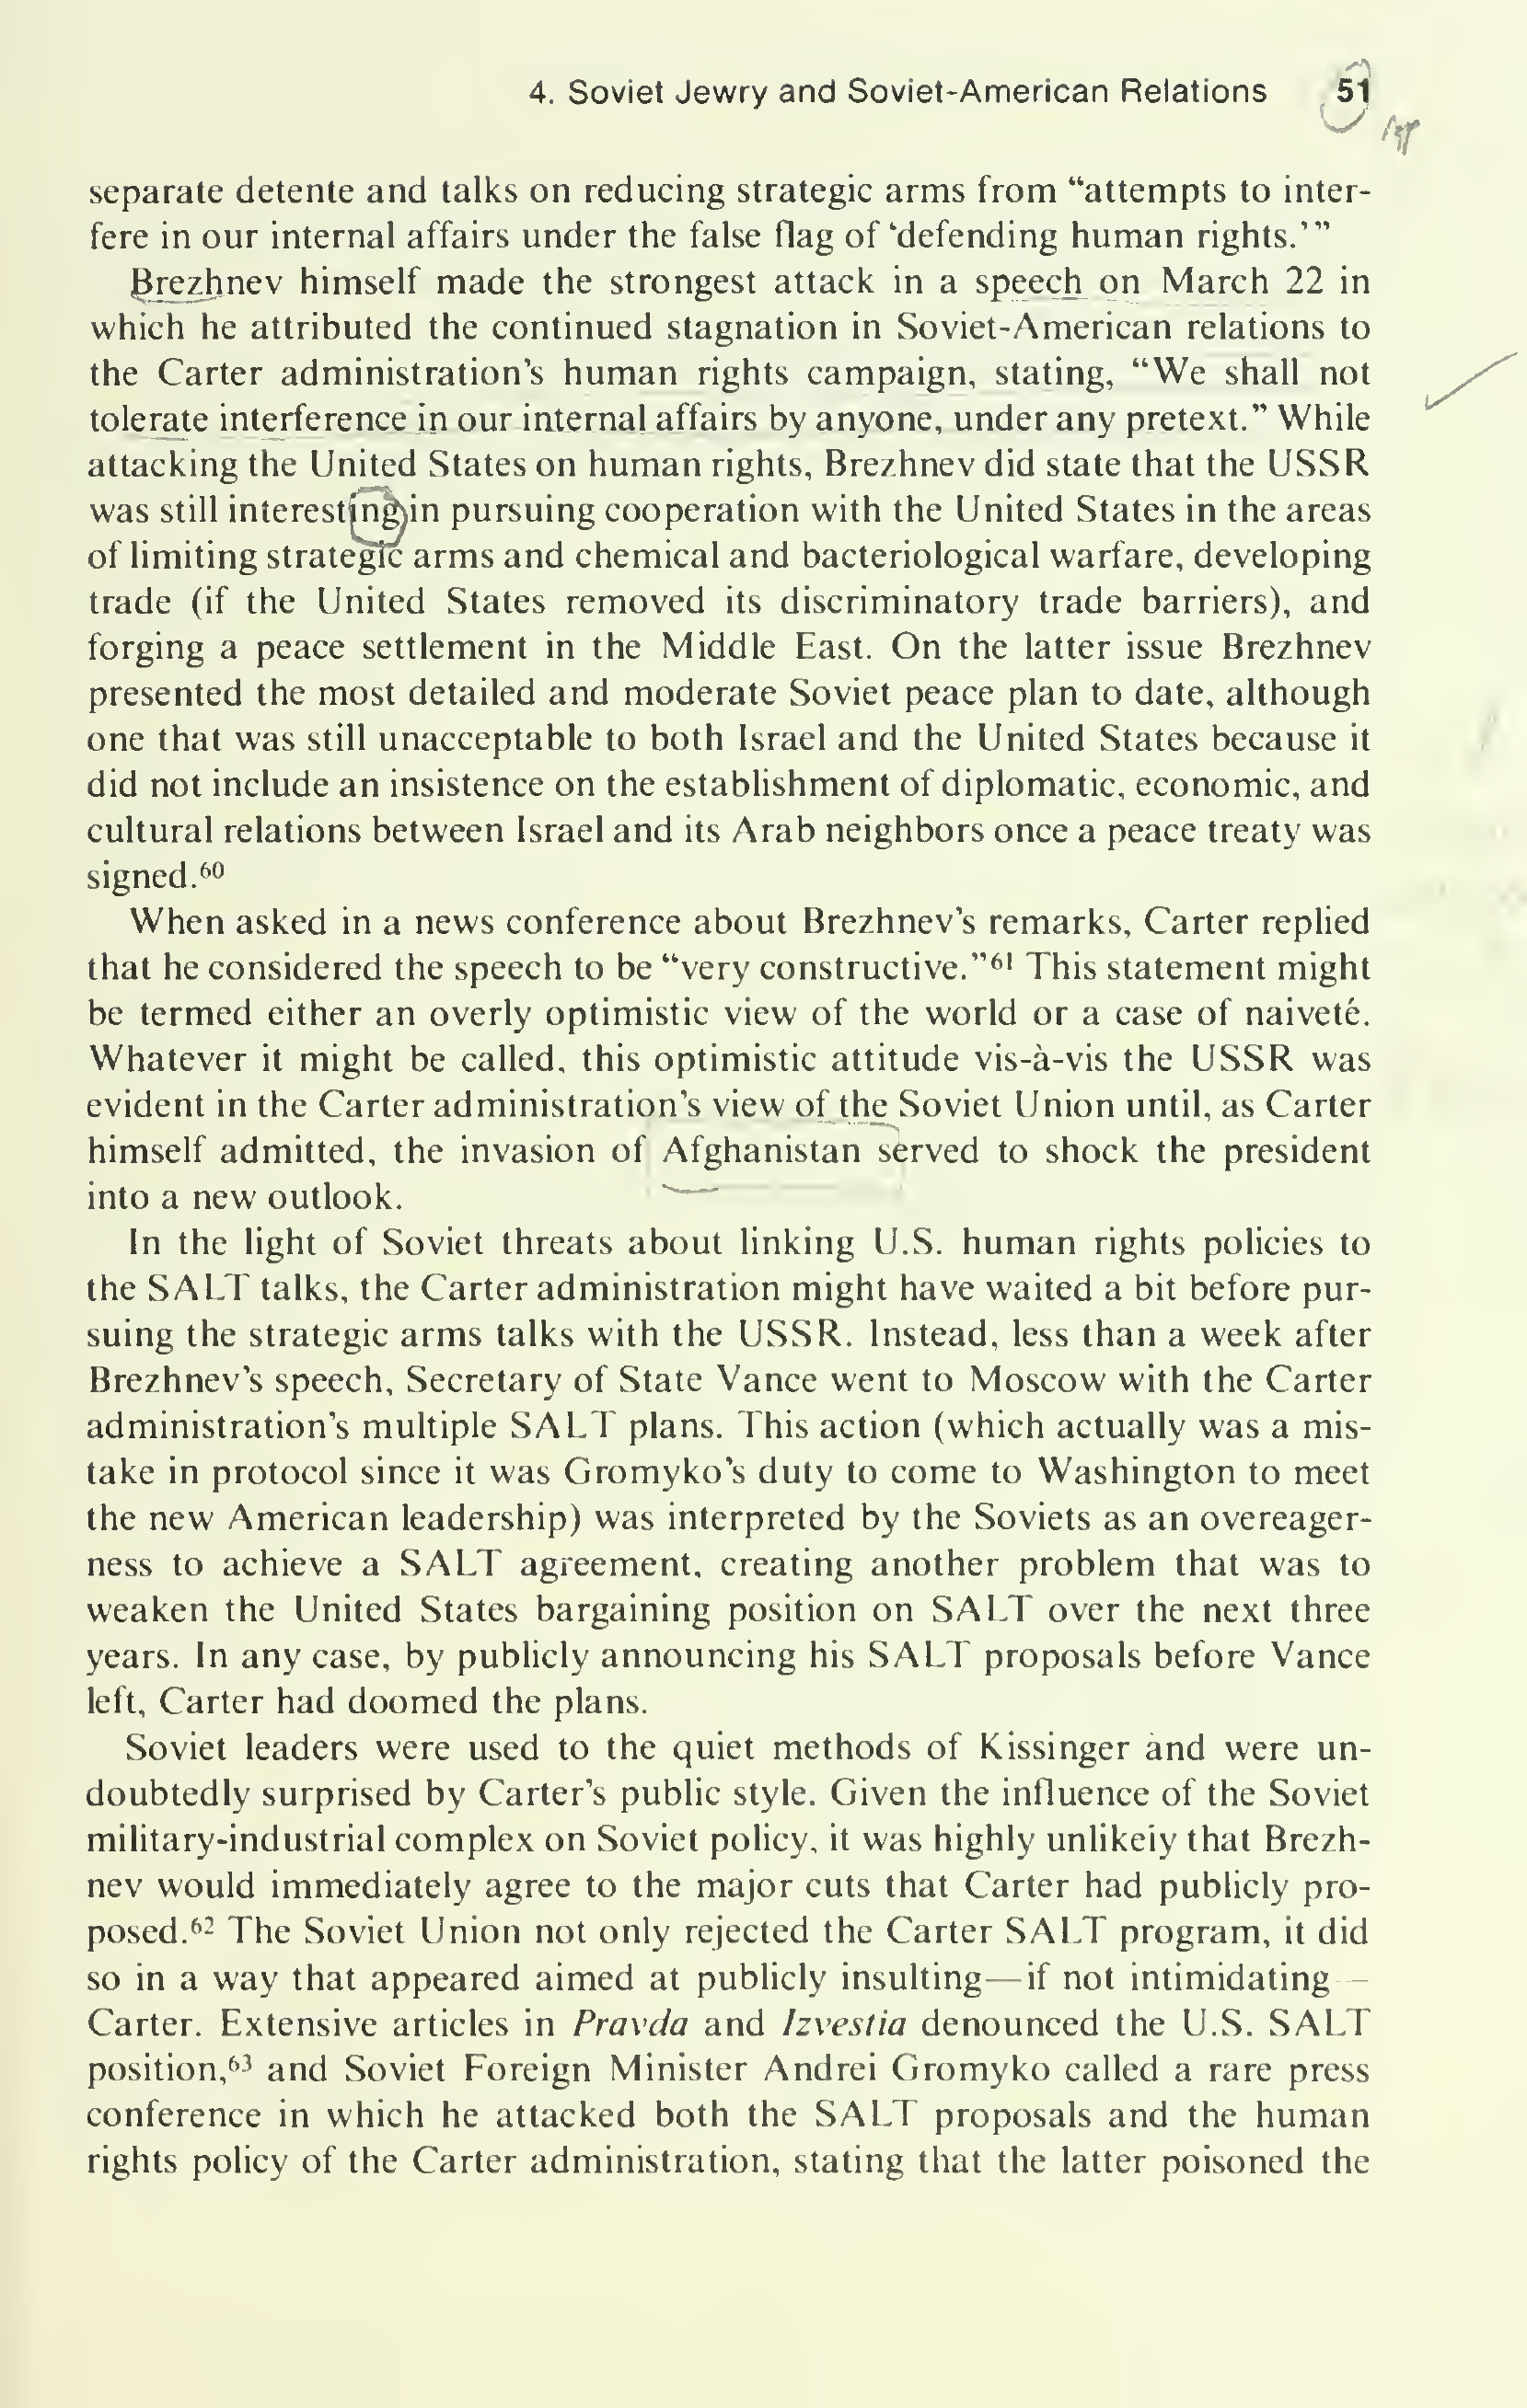 4. Soviet Jewry and Soviet-American Relations 51
separate detente and talks on reducing strategic arms from “attempts to inter-
fere in our internal affairs under the false flag of ‘defending human rights.’”
Brezhnev himself made the strongest attack in a speech on March 22 in
which he attributed the continued stagnation in Soviet-American relations to
the Carter administration’s human rights campaign, stating, “We shall not
tolerate interference in our internal affairs by anyone, under any pretext.” While
attacking the United States on human rights, Brezhnev did state that the USSR
was still interesting in pursuing cooperation with the United States in the areas
of limiting strategic arms and chemical and bacteriological warfare, developing
trade (if the United States removed its discriminatory trade barriers), and
forging a peace settlement in the Middle East. On the latter issue Brezhnev
presented the most detailed and moderate Soviet peace plan to date, although
one that was still unacceptable to both Israel and the United States because it
did not include an insistence on the establishment of diplomatic, economic, and
cultural relations between Israel and its Arab neighbors once a peace treaty was
signed.⁶⁰
When asked in a news conference about Brezhnev’s remarks, Carter replied
that he considered the speech to be “very constructive.”⁶¹ This statement might
be termed either an overly optimistic view of the world or a case of naiveté.
Whatever it might be called, this optimistic attitude vis-à-vis the USSR was
evident in the Carter administration’s view of the Soviet Union until, as Carter
himself admitted, the invasion of Afghanistan served to shock the president
into a new outlook.
In the light of Soviet threats about linking U.S. human rights policies to
the SALT talks, the Carter administration might have waited a bit before pur-
suing the strategic arms talks with the USSR. Instead, less than a week after
Brezhnev’s speech, Secretary of State Vance went to Moscow with the Carter
administration’s multiple SALT plans. This action (which actually was a mis-
take in protocol since it was Gromyko’s duty to come to Washington to meet
the new American leadership) was interpreted by the Soviets as an overeager-
ness to achieve a SALT agreement, creating another problem that was to
weaken the United States bargaining position on SALT over the next three
years. In any case, by publicly announcing his SALT proposals before Vance
left, Carter had doomed the plans.
Soviet leaders were used to the quiet methods of Kissinger and were un-
doubtedly surprised by Carter’s public style. Given the influence of the Soviet
military-industrial complex on Soviet policy, it was highly unlikely that Brezh-
nev would immediately agree to the major cuts that Carter had publicly pro-
posed.⁶² The Soviet Union not only rejected the Carter SALT program, it did
so in a way that appeared aimed at publicly insulting—if not intimidating—
Carter. Extensive articles in Pravda and Izvestia denounced the U.S. SALT
position,⁶³ and Soviet Foreign Minister Andrei Gromyko called a rare press
conference in which he attacked both the SALT proposals and the human
rights policy of the Carter administration, stating that the latter poisoned the